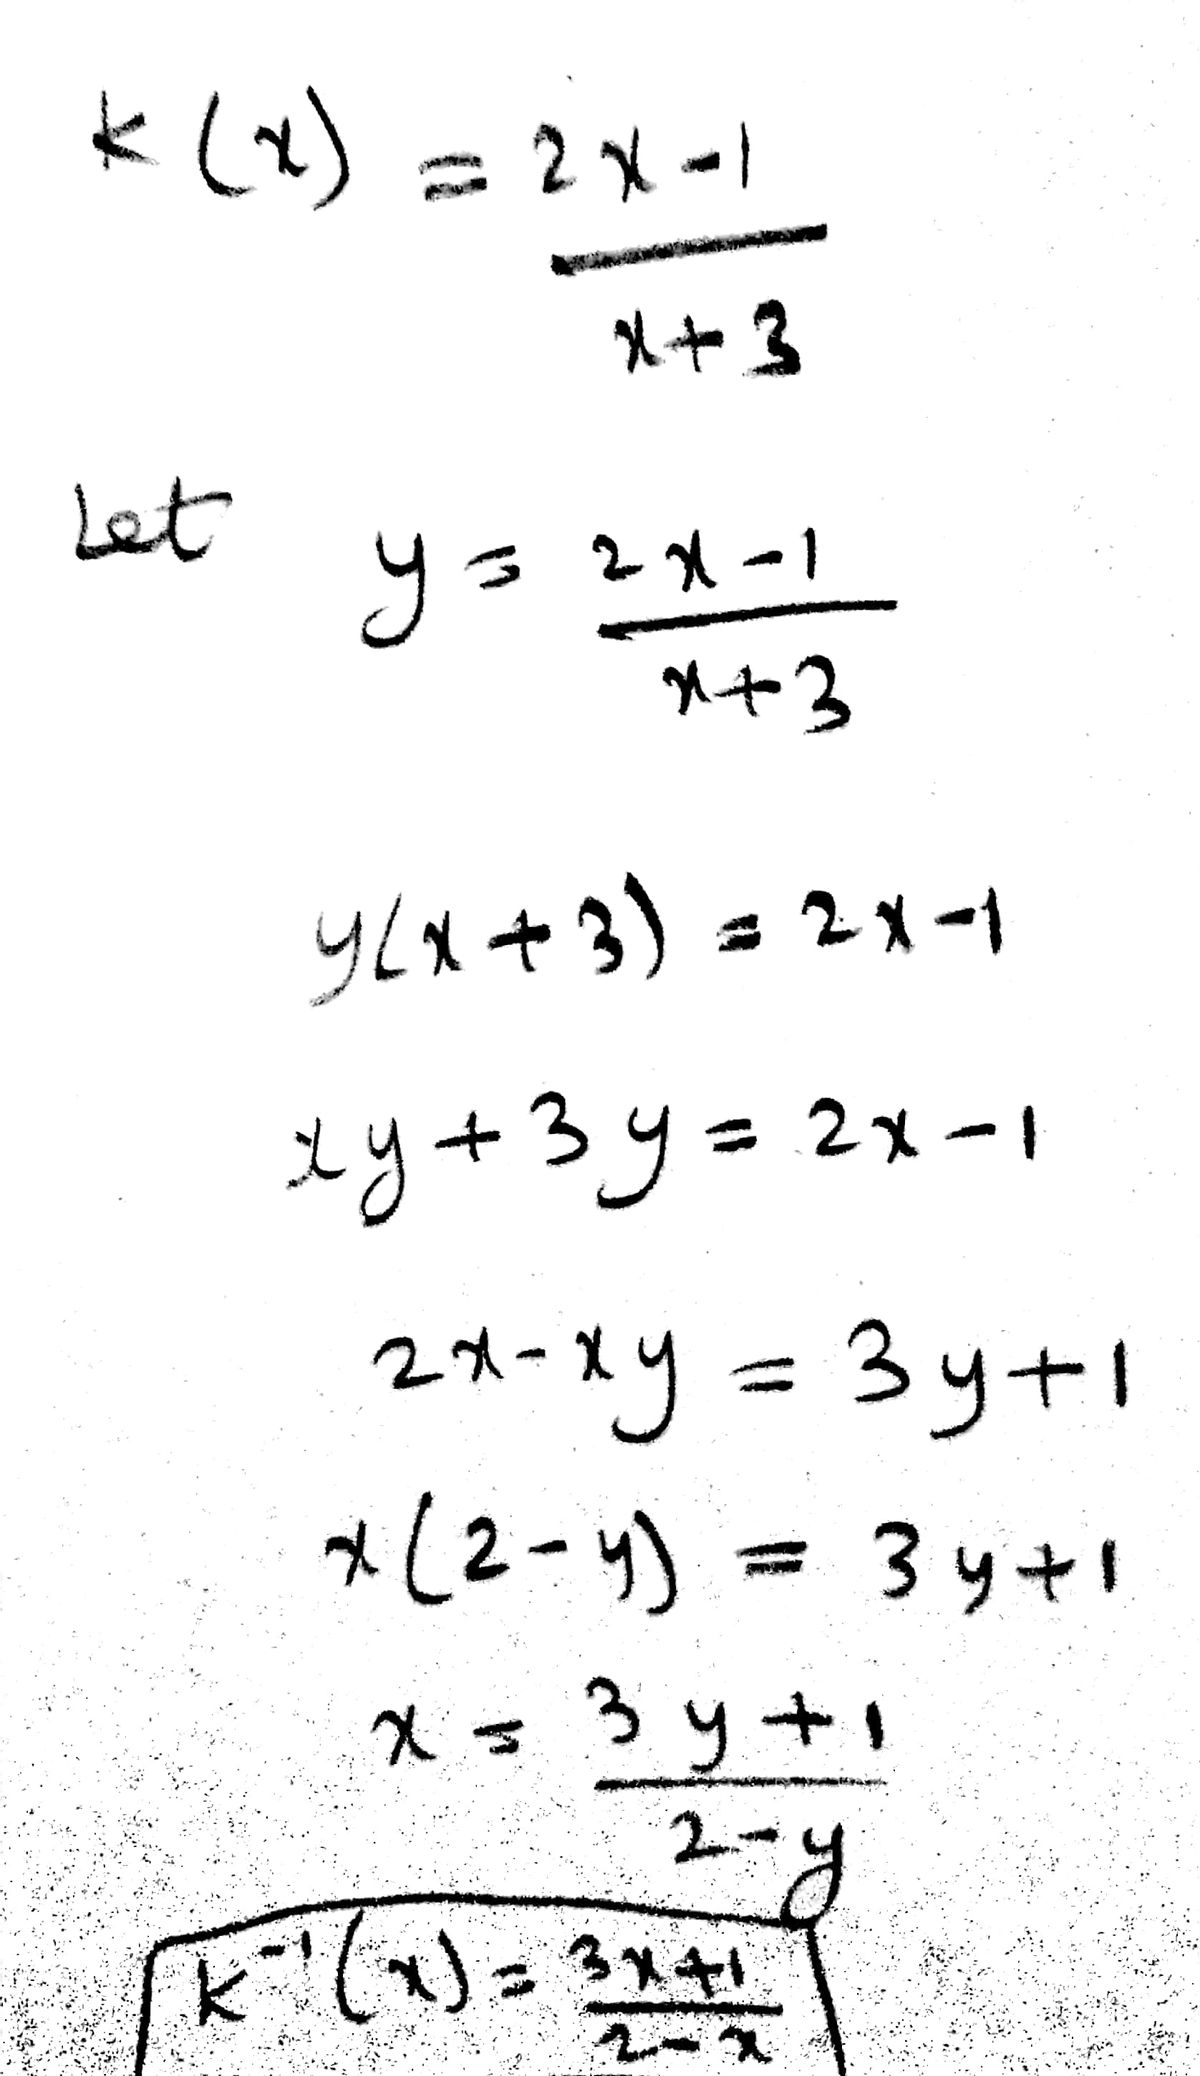 k(x) = 2x-1
x+3
Let y = 2x-1
x+3
y(x+3) = 2x-1
xy+3y = 2x-1
2x-xy = 3y+1
x(2-y) = 3y+1
x = 3y+1
2-y
k⁻¹(x) = 3x+1
2-x